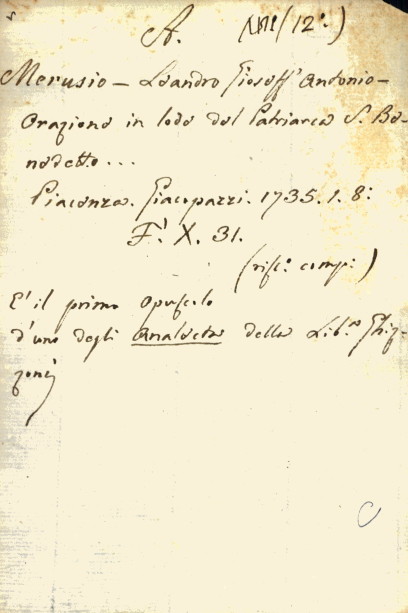 A. (12°.)
Merusio – Leandro Gioseff' Antonio –
Orazione in lode del Patriarca S. Be-
nedetto...
Piacenza. Giacopazzi. 1735. 1. 8:
F. X. 31.
(risc.° comp:)
E' il primo opuscolo
d'uno degli Analecta della Lib.ª Ghiz-
zoni
C